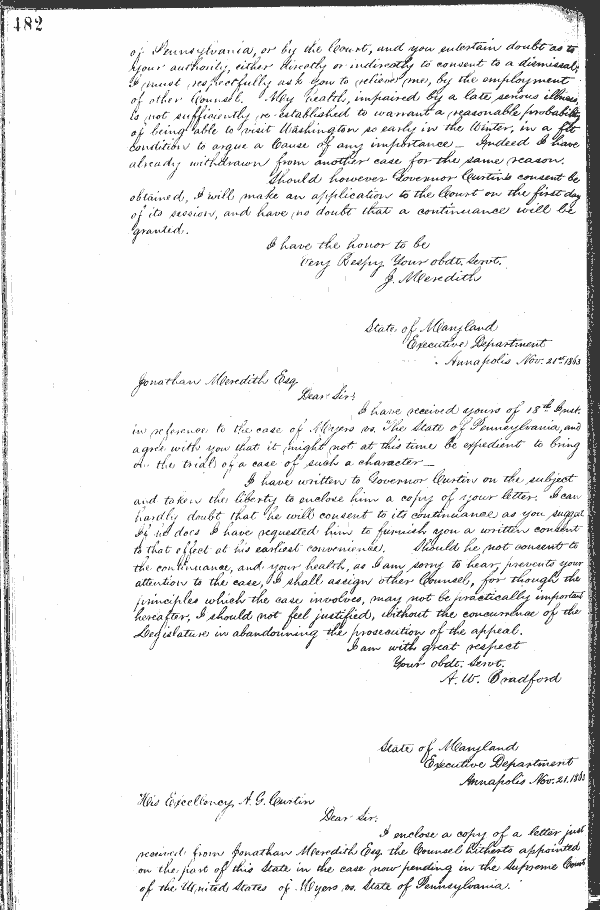 482
of Pennsylvania, or by the Court, and you entertain doubt as to
your authority, either directly or indirectly to consent to a dismissal,
I must respectfully ask you to relieve me, by the employment
of other Counsel. My health, impaired by a late serious illness,
is not sufficiently re-established to warrant a reasonable probability
of being able to visit Washington so early in the Winter, in a fit
condition to argue a Cause of any importance – Indeed I have
already withdrawn from another case for the same reason.
Should however Governor Curtin's consent be
obtained, I will make an application to the Court on the first day
of its session, and have no doubt that a continuance will be
granted.
I have the honor to be
Very Respy Your obdt. Servt.
J. Meredith
State of Maryland
Executive Department
Annapolis Nov. 21st 1863
Jonathan Meredith Esq
Dear Sir:
I have received yours of 18th Inst.
in reference to the case of Myers vs. The State of Pennsylvania, and
agree with you that it might not at this time be expedient to bring
on the trial of a case of such a character –
I have written to Governor Curtin on the subject
and taken the liberty to enclose him a copy of your letter. I can
hardly doubt that he will consent to its continuance as you suggest
If he does I have requested him to furnish you a written consent
to that effect at his earliest convenience. Should he not consent to
the continuance, and your health, as I am sorry to hear, prevents your
attention to the case, I shall assign other Counsel, for though the
principles which the case involves, may not be practically important
hereafter, I should not feel justified, without the concurrence of the
Legislature in abandonning the prosecution of the appeal.
I am with great respect
Your obdt. Servt.
A. W. Bradford
State of Maryland
Executive Department
Annapolis Nov. 21, 1863
His Excellency, A. G. Curtin
Dear Sir:
I enclose a copy of a letter just
received from Jonathan Meredith Esq. the Counsel hitherto appointed
on the part of this State in the case now pending in the Supreme Court
of the United States of Myers vs. State of Pennsylvania.